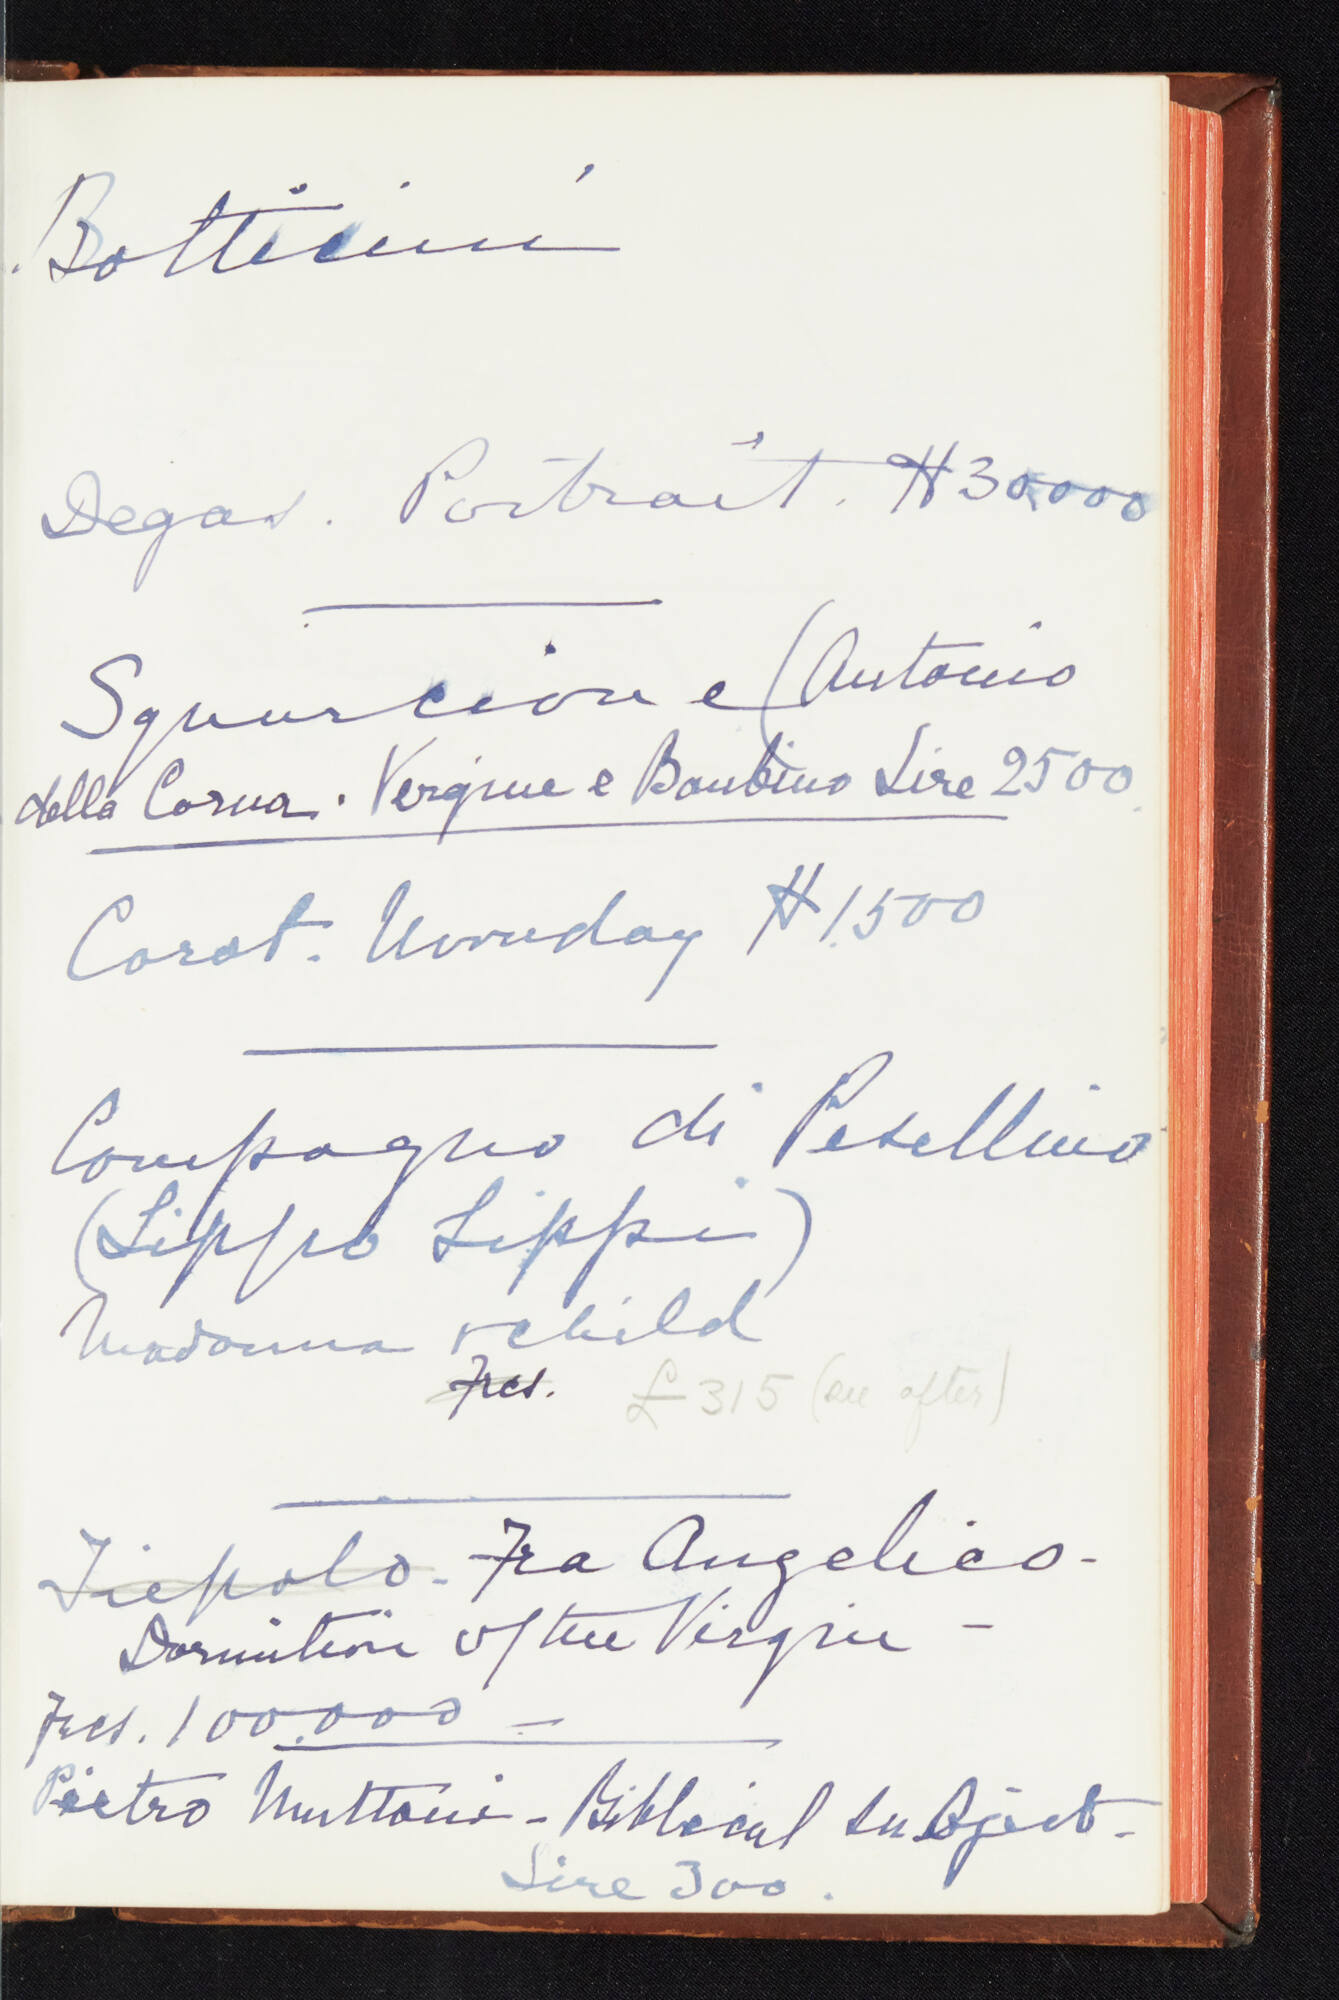 Botticini
Degas. Portrait. $30000
Squarcione (Antonio
della Corna. Vergine e Bambino Lire 2500.
Corot. Noonday $1.500
Compagno di Pesellino
(Lippo Lippi)
Madonna & child
Frcs. £315 (see after)
Tiepolo. Fra Angelico-
Dormition of the Virgin -
Frcs. 100.000 -
Pietro Muttoni - Biblical subject-
Lire 300.